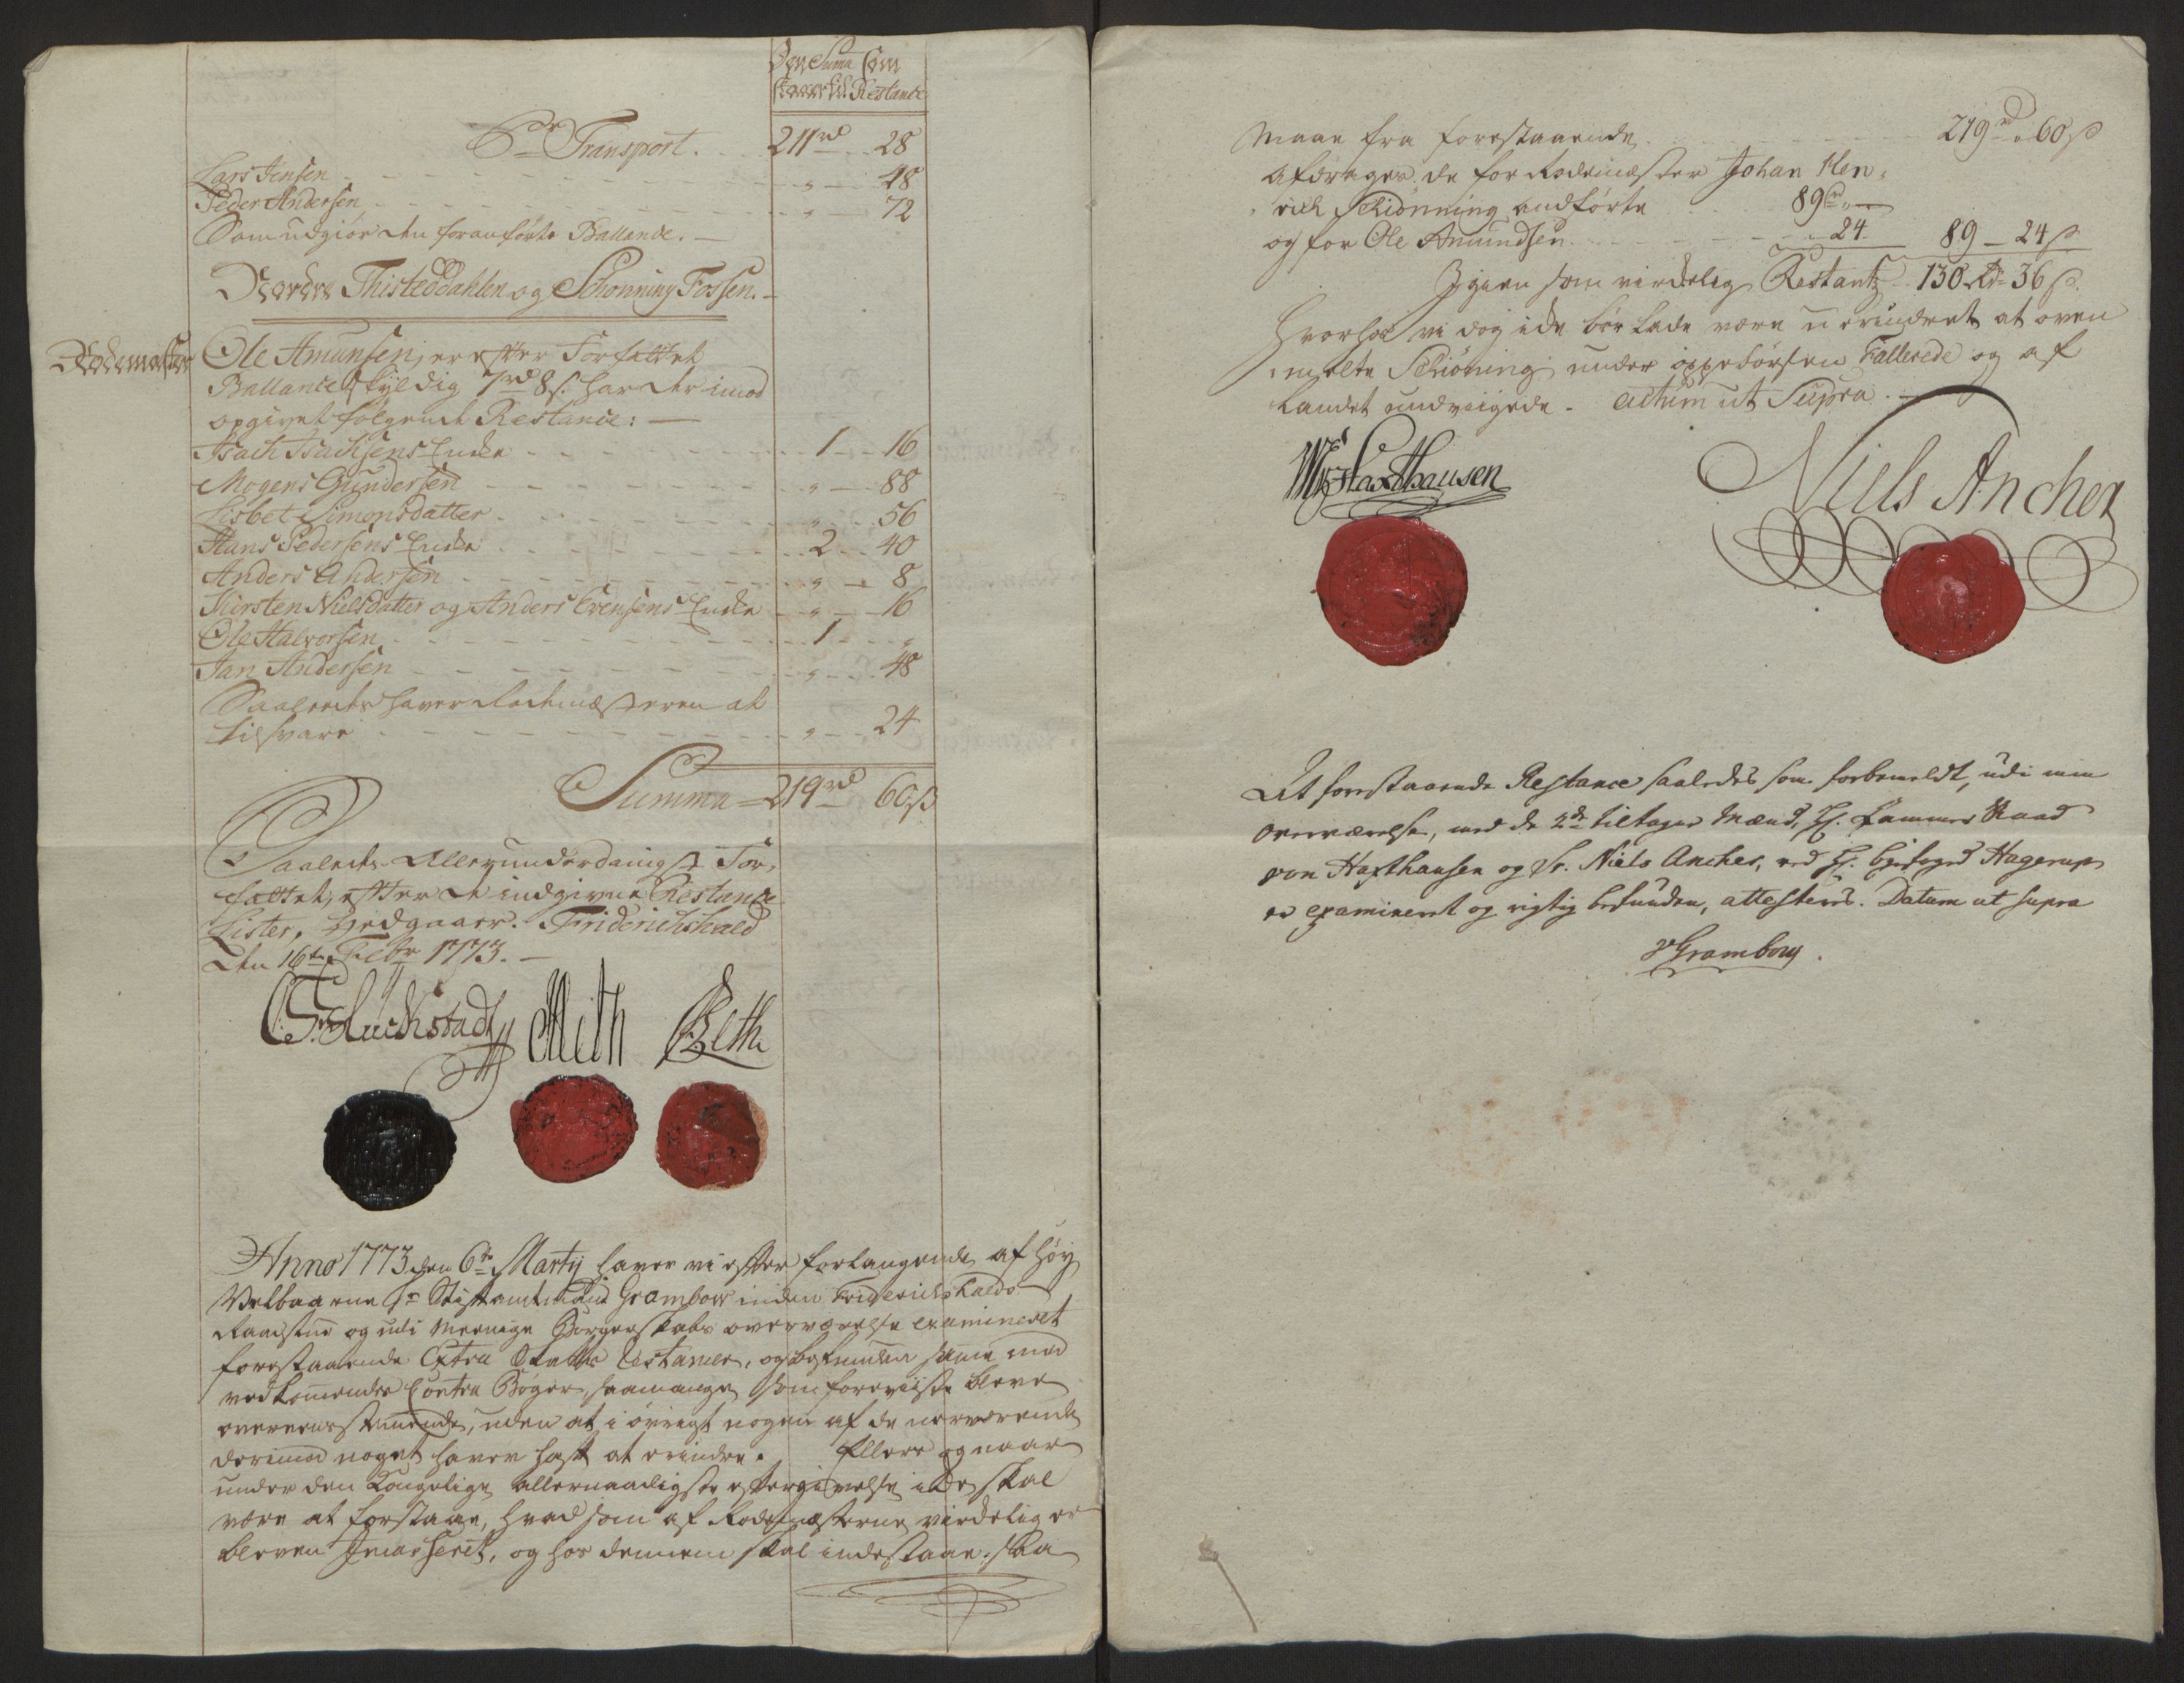 Den Suma som
staaer til Restance
Pr Transport. 211rd 28
Lars Jensen 48
Peder Andersen 72
Som udgiør den foranførte Ballance.
Nordre Thisteddahlen og Schonning Fossen.
Rodemæster Ole Amunsen, er efter Forfattet
Ballance skyldig 7rd 8s: har der imod
opgivet følgende Restance:
Isach Isachsens Encke 1 16
Mogens Gundersen 88
Lisbet Simonsdatter 56
Hans Pedersens Encke 2 40
Anders Andersen 8
Kirsten Nielsdatter og Anders Evensens Encke 16
Ole Halvorsen 1
Jan Andersen 48
Saaledes haver Rodemæsteren at
tilsvare 24
Summa 219rd 60s
Saaledes Allerunderdanigst For-
fattet, efter de indgivne Restance
Lister, Friderichshald
Den 16de Febr 1773.
C. Glückstadt Meth Beth
Anno 1773 den 6te Martij haver vi efter forlangende af Høy
Velbaarne Hr Stiftamtmand Grambow inden Friderichshalds
Raadstue og udi Meenige Borgerskabs overværelse examineret
forestaaende Extra Skatte Restancer, og befunden samme med
vedkommendes Contra Bøger, saamange som foreviiste bleve
overeensstemmende, uden at i øvrigt nogen af de nærværende
derimod noget haver haft at erindre. Ellers og naar
under den Kongelige allernaadigste eftergivelse icke skal
være at forstaae, hvad som af Rodemesterne virckelig er
bleven Incasseret, og hos dennem skal indestaae: saa
maae fra forestaaende 219rd 60s
afdrages de for Rodemester Johan Hen-
rich Schiønning andførte 89rd
og for Ole Amundsen 24 89 - 24s
Igien som virckelig Restantz 130rd 36s
Hvorhos vi dog icke bør lade være u-erindret at oven
-melte Schiøning under oppebørsen Fallerede og af
Landet undviigede. actum ut Supra.
Haxthausen
Niels Ancher
At forestaaende Restance saaledes som forbemeldt, udi min
overværelse, med de 2de tiltagne Mænd, Hr. Cammer Raad
von Haxthausen og Sr. Niels Ancher, ved Hr. Byefoged Hagerup
er examineret og rigtig befunden, attesteres. Datum ut supra
v Grambow.